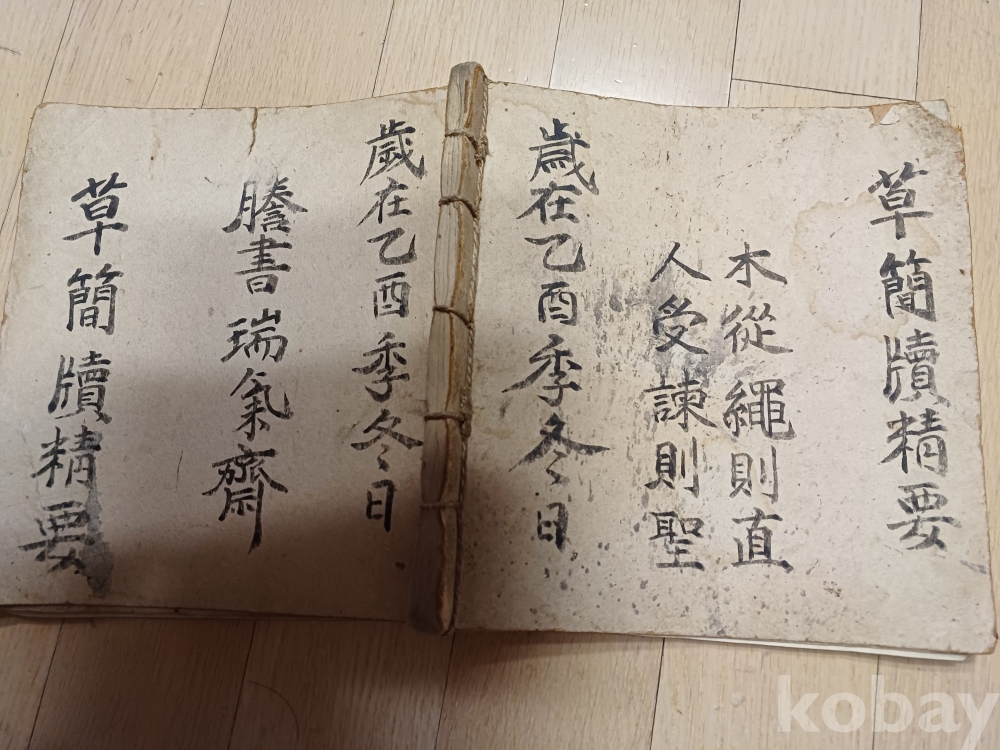 草簡牘精要
木從繩則直
人受諫則聖
歲在乙酉季冬日
歲在乙酉季冬日
謄書瑞氣齋
草簡牘精要
kobay